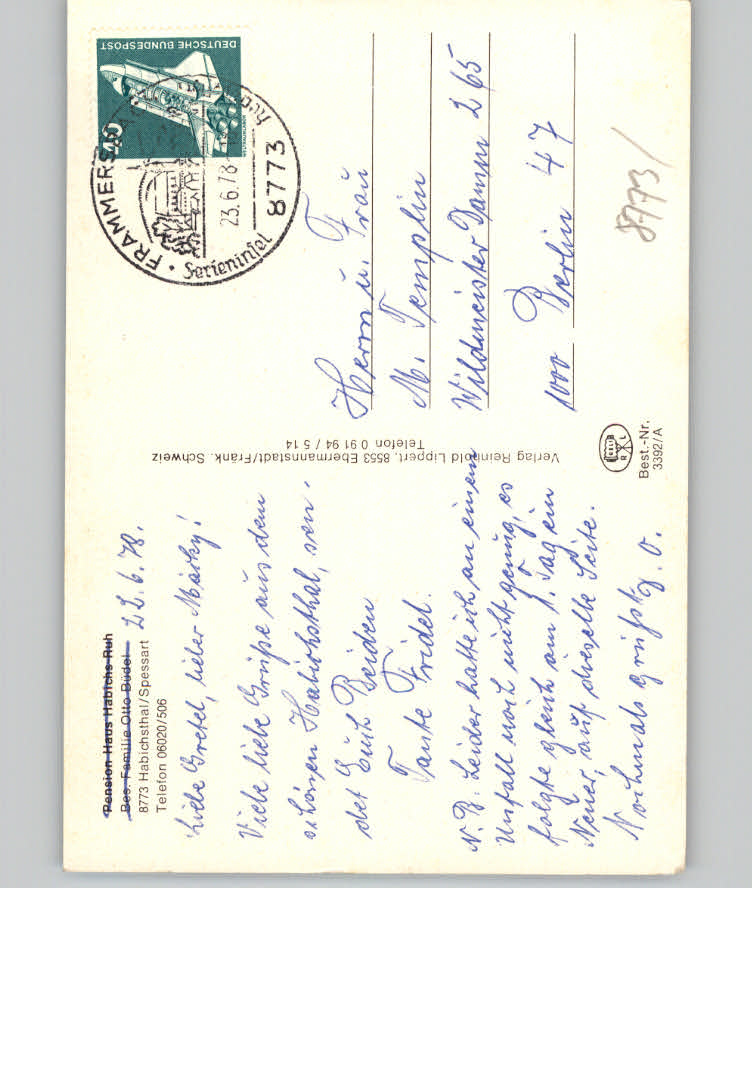 Pension Haus Habichs-Ruh
Bes. Familie Otto Büdel
8773 Habichsthal/Spessart
Telefon 06020/506
22.6.78.
Liebe Gretel, lieber Märky!
Viele liebe Grüße aus dem
schönen Habichsthal, sen-
det Euch Beiden
Tante Fridel.
N.B. Leider hatte ich an einem
Unfall noch nicht genug, es
folgte gleich am 1. Tag ein
Neuer, auf dieselbe Seite.
Nochmals grüßt
D. O.
Verlag Reinhold Lippert, 8553 Ebermannstadt/Fränk. Schweiz
Telefon 0 91 94 / 5 14
R L
Best.-Nr.
3392/A
DEUTSCHE BUNDESPOST
40
FRAMMERSBACH
23.6.78
Ferieninsel
8773
Herrn u. Frau
M. Templin
Wildmeister Damm 265
1000 Berlin 47
8773/